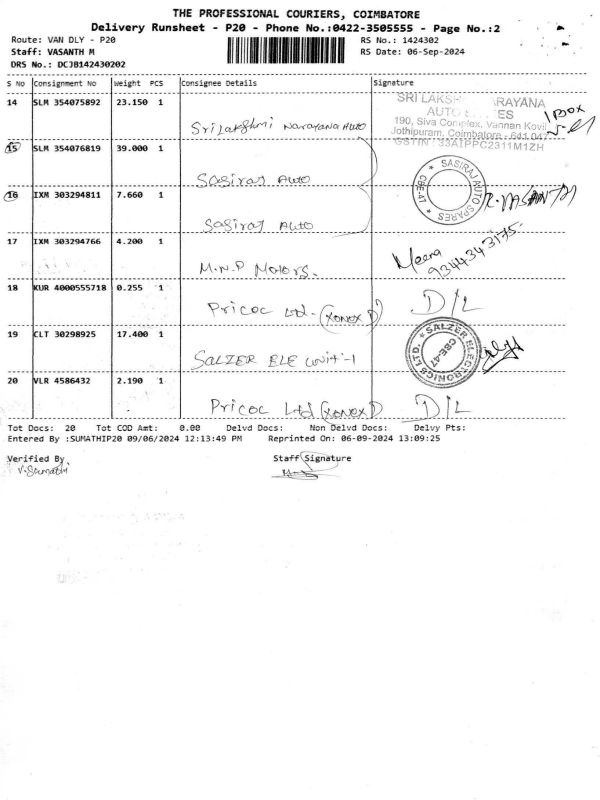 THE PROFESSIONAL COURIERS, COIMBATORE
Delivery Runsheet - P20 - Phone No.:0422-3505555 - Page No.:2
Route: VAN DLY - P20 RS No.: 1424302
Staff: VASANTH M RS Date: 06-Sep-2024
DRS No.: DCJB142430202
S No Consignment No Weight PCS Consignee Details Signature
14 SLM 354075892 23.150 1
Sri Lakshmi Narayana Auto
SRI LAKSH ARAYANA
AUTO ES
190, Siva Complex, Vannan Kovil
Jothipuram, Coimbatore - 641 047
GSTIN : 33AIPPC2311M1ZH
1 Box
15 SLM 354076819 39.000 1
Sasiraj Auto
16 IXM 303294811 7.660 1
Sasiraj Auto
SASIRAJ AUTO SPARES
CBE-47
17 IXM 303294766 4.200 1
M.N.P Motors.
Meena
9344343175
18 KUR 4000555718 0.255 1
Pricoc Ltd. (xonox D)
D/L
19 CLT 30298925 17.400 1
SALZER ELE Unit-1
SALZER ELECTRONICS LTD.
CBE-47
20 VLR 4586432 2.190 1
Pricoc Ltd (xonox D)
D/L
Tot Docs: 20 Tot COD Amt: 0.00 Delvd Docs: Non Delvd Docs: Delvy Pts:
Entered By :SUMATHIP20 09/06/2024 12:13:49 PM Reprinted On: 06-09-2024 13:09:25
Verified By Staff Signature
V. Sumathi